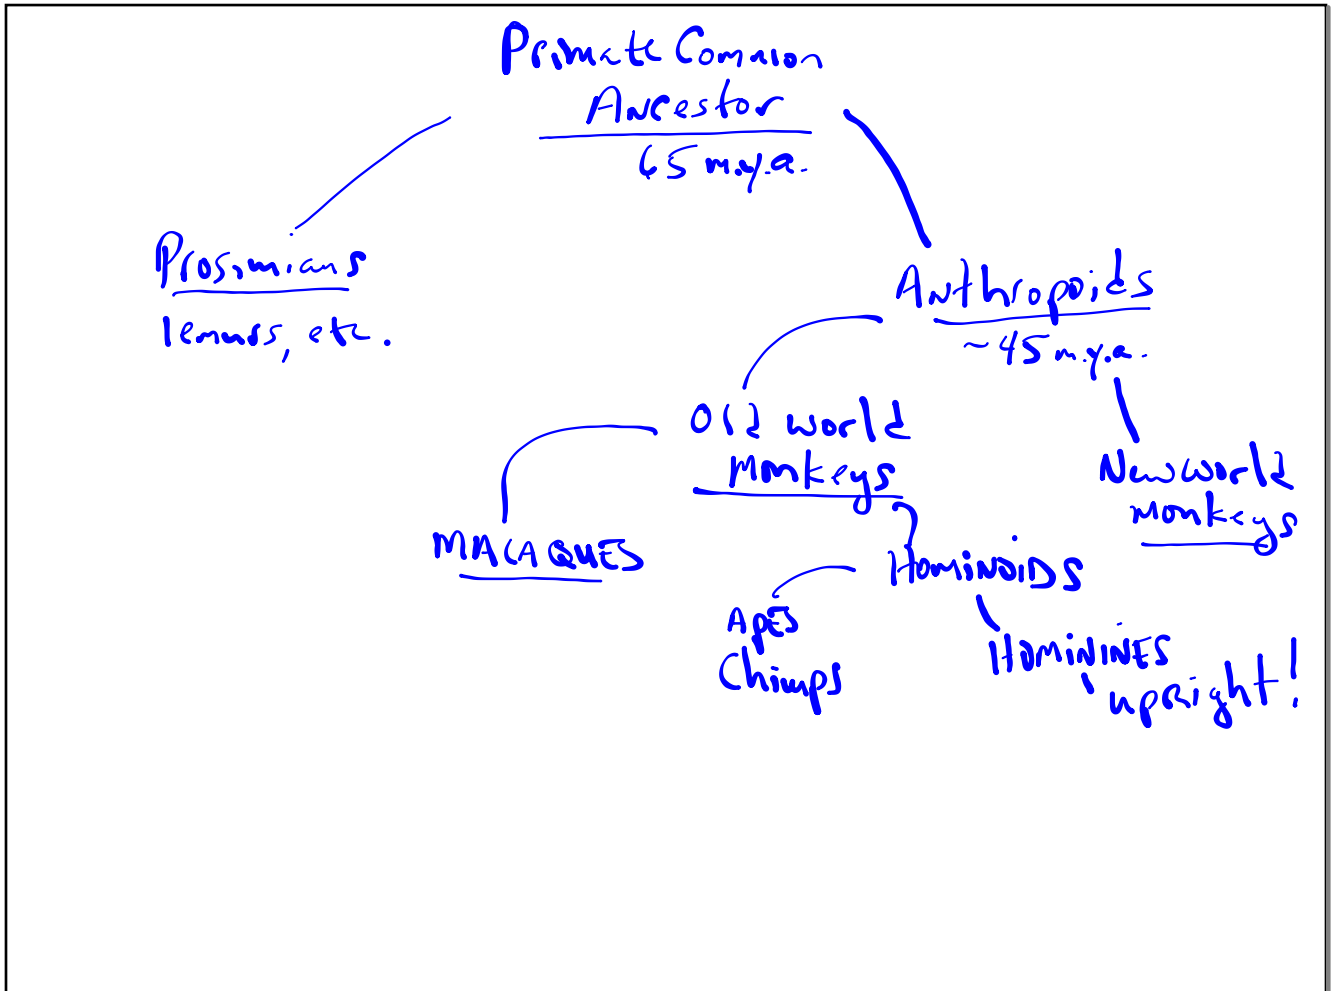 Primate Common
Ancestor
65 m.y.a.
Prosimians
lemurs, etc.
Anthropoids
~45 m.y.a.
Old World
Monkeys
New World
monkeys
MACAQUES
HOMINOIDS
APES
Chimps
HOMININES
upright!